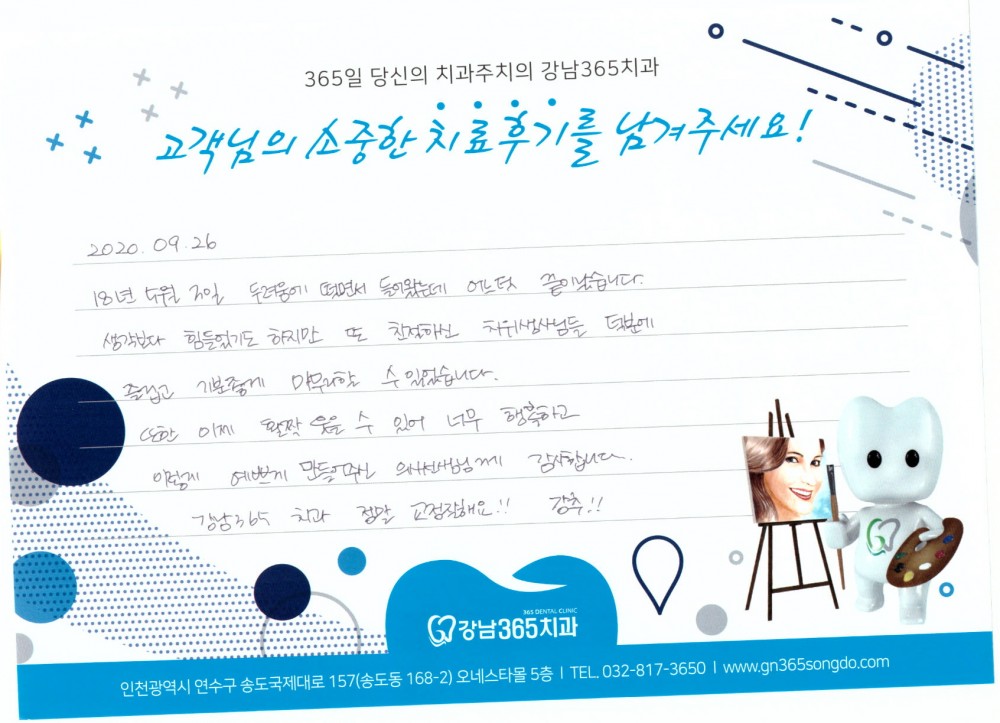 365일 당신의 치과주치의 강남365치과
고객님의 소중한 치료후기를 남겨주세요!
2020. 09. 26
18년 5월 2일 두려움에 떨면서 들어왔는데 어느덧 끝이났습니다.
생각보다 힘들었기도 하지만 또 친절하신 치위생사님들 덕분에
즐겁고 기분좋게 마무리할 수 있었습니다.
또한 이제 활짝 웃을 수 있어 너무 행복하고
이렇게 예쁘게 만들어주신 의사선생님께 감사합니다.
강남365 치과 정말 교정잘해요!! 강추!!
365 DENTAL CLINIC
강남365치과
인천광역시 연수구 송도국제대로 157(송도동 168-2) 오네스타몰 5층 | TEL. 032-817-3650 | www.gn365songdo.com